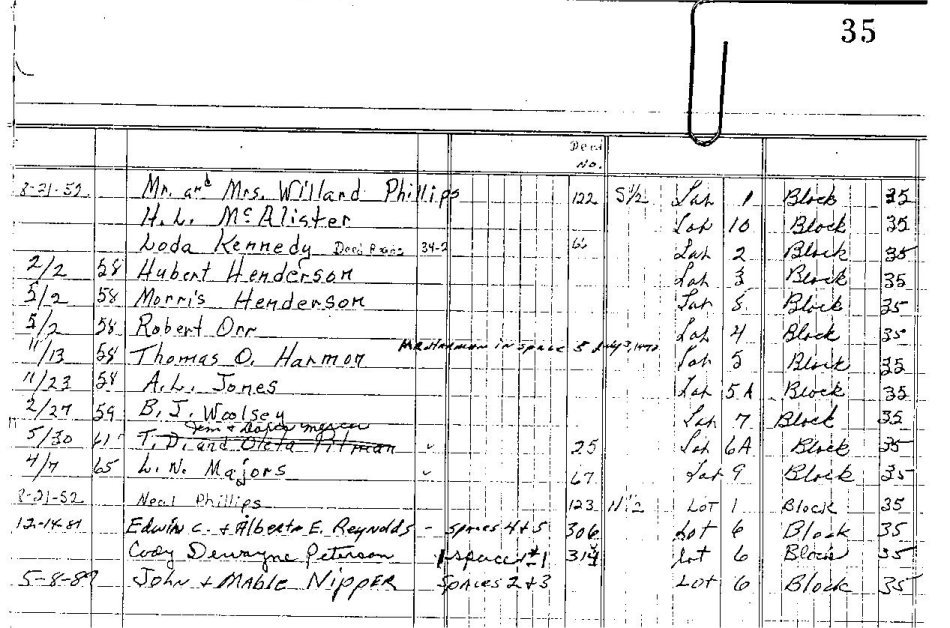 35
Deed
No.
8-21-52 Mr. and Mrs. Willard Phillips 122 S 1/2 Lot 1 Block 35
H. L. McAlister Lot 10 Block 35
Loda Kennedy Deed 34-2 Lot 2 Block 35
2/2 58 Hubert Henderson Lot 3 Block 35
5/2 58 Morris Henderson Lot 8 Block 35
5/2 58 Robert Orr Lot 4 Block 35
11/13 58 Thomas O. Harmon Mr. Harmon in space 5 Lot 5 Block 35
11/23 58 A. L. Jones Lot 5A Block 35
2/27 59 B. J. Woolsey Lot 7 Block 35
5/30 61 T. D. and Oleta Pitman 25 Lot 6A Block 35
4/7 65 L. N. Majors 67 Lot 9 Block 35
8-21-52 Neal Phillips 123 N 1/2 Lot 1 Block 35
12-14-87 Edwin C. + Alberta E. Reynolds - spaces 4+5 306 Lot 6 Block 35
Cody Dewayne Peterson 1 space #1 314 Lot 6 Block 35
5-8-89 John + Mable Nipper Spaces 2+3 Lot 6 Block 35